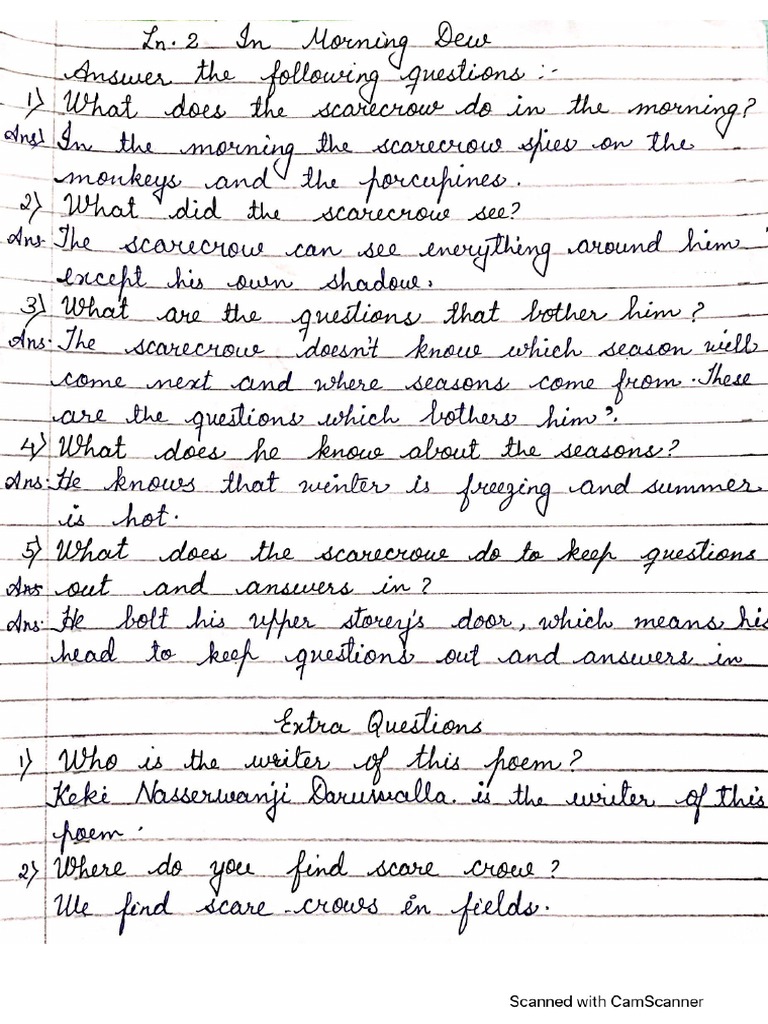 Ln. 2 In Morning Dew
Answer the following questions :-
1) What does the scarecrow do in the morning?
Ans) In the morning the scarecrow spies on the
monkeys and the porcupines.
2) What did the scarecrow see?
Ans. The scarecrow can see everything around him
except his own shadow.
3) What are the questions that bother him?
Ans. The scarecrow doesn't know which season will
come next and where seasons come from. These
are the questions which bothers him?.
4) What does he know about the seasons?
Ans. He knows that winter is freezing and summer
is hot.
5) What does the scarecrow do to keep questions
Ans out and answers in?
Ans. He bolt his upper storey's door, which means his
head to keep questions out and answers in
Extra Questions
1) Who is the writer of this poem?
Keki Nasserwanji Daruwalla. is the writer of this
poem.
2) Where do you find scare crow?
We find scare-crows in fields.
Scanned with CamScanner